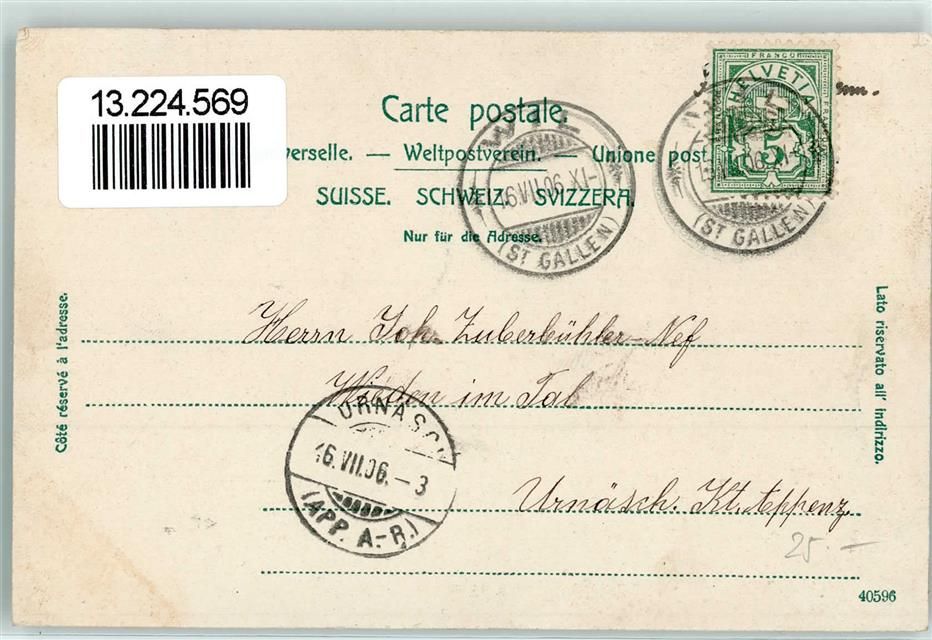 13.224.569
Carte postale.
verselle. — Weltpostverein. — Unione post
SUISSE. SCHWEIZ. SVIZZERA.
Nur für die Adresse.
FRANCO
HELVETIA
5
WIL
16.VII.06.XI-
(ST GALLEN)
(ST GALLEN)
Côté réservé à l'adresse.
Lato riservato all' indirizzo.
Herrn Joh. Zuberbühler-Nef
Wieden im Tal
Urnäsch. Kt. Appenz.
URNÄSCH
16.VII.06.-3
(APP. A.-R.)
25.-
40596